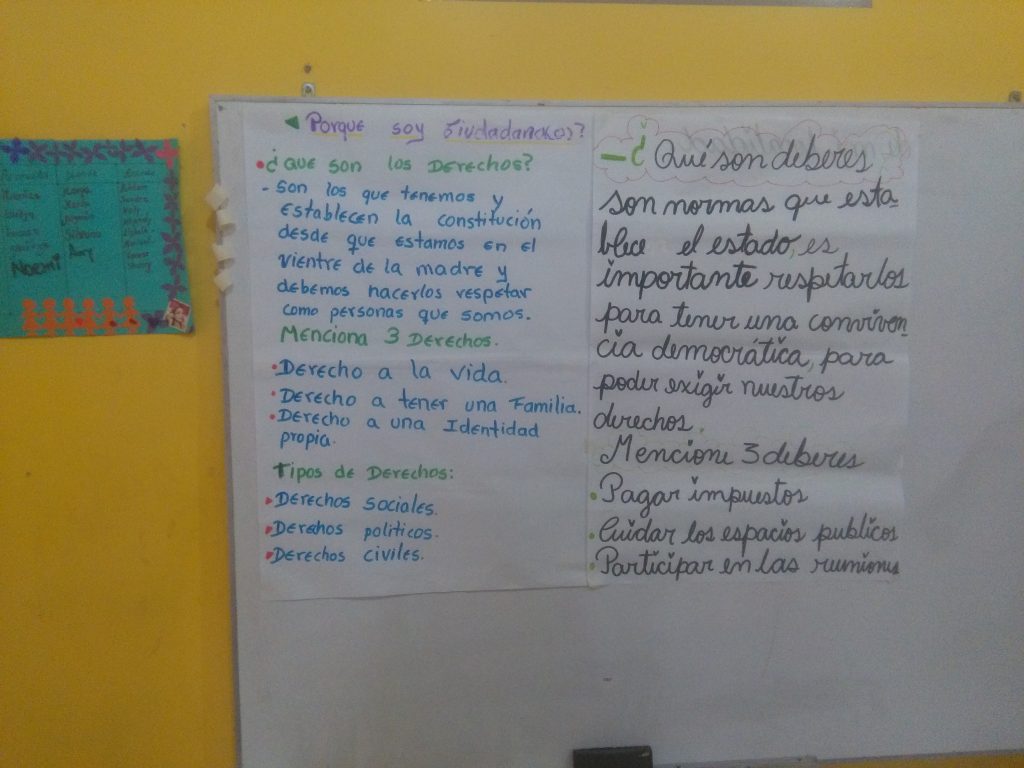 Porque soy ciudadano(a)?
¿Que son los Derechos?
- Son los que tenemos y
establecen la constitución
desde que estamos en el
vientre de la madre y
debemos hacerlos respetar
como personas que somos.
Menciona 3 Derechos.
Derecho a la vida.
Derecho a tener una Familia.
Derecho a una Identidad
propia.
Tipos de Derechos:
Derechos sociales.
Derechos politicos.
Derechos civiles.
- ¿ Qué son deberes
son normas que esta-
blece el estado, es
importante respetarlos
para tener una conviven
cia democrática, para
poder exigir nuestros
derechos.
Mencione 3 deberes
Pagar impuestos
Cuidar los espacios publicos
Participar en las reuniones
NOEMI